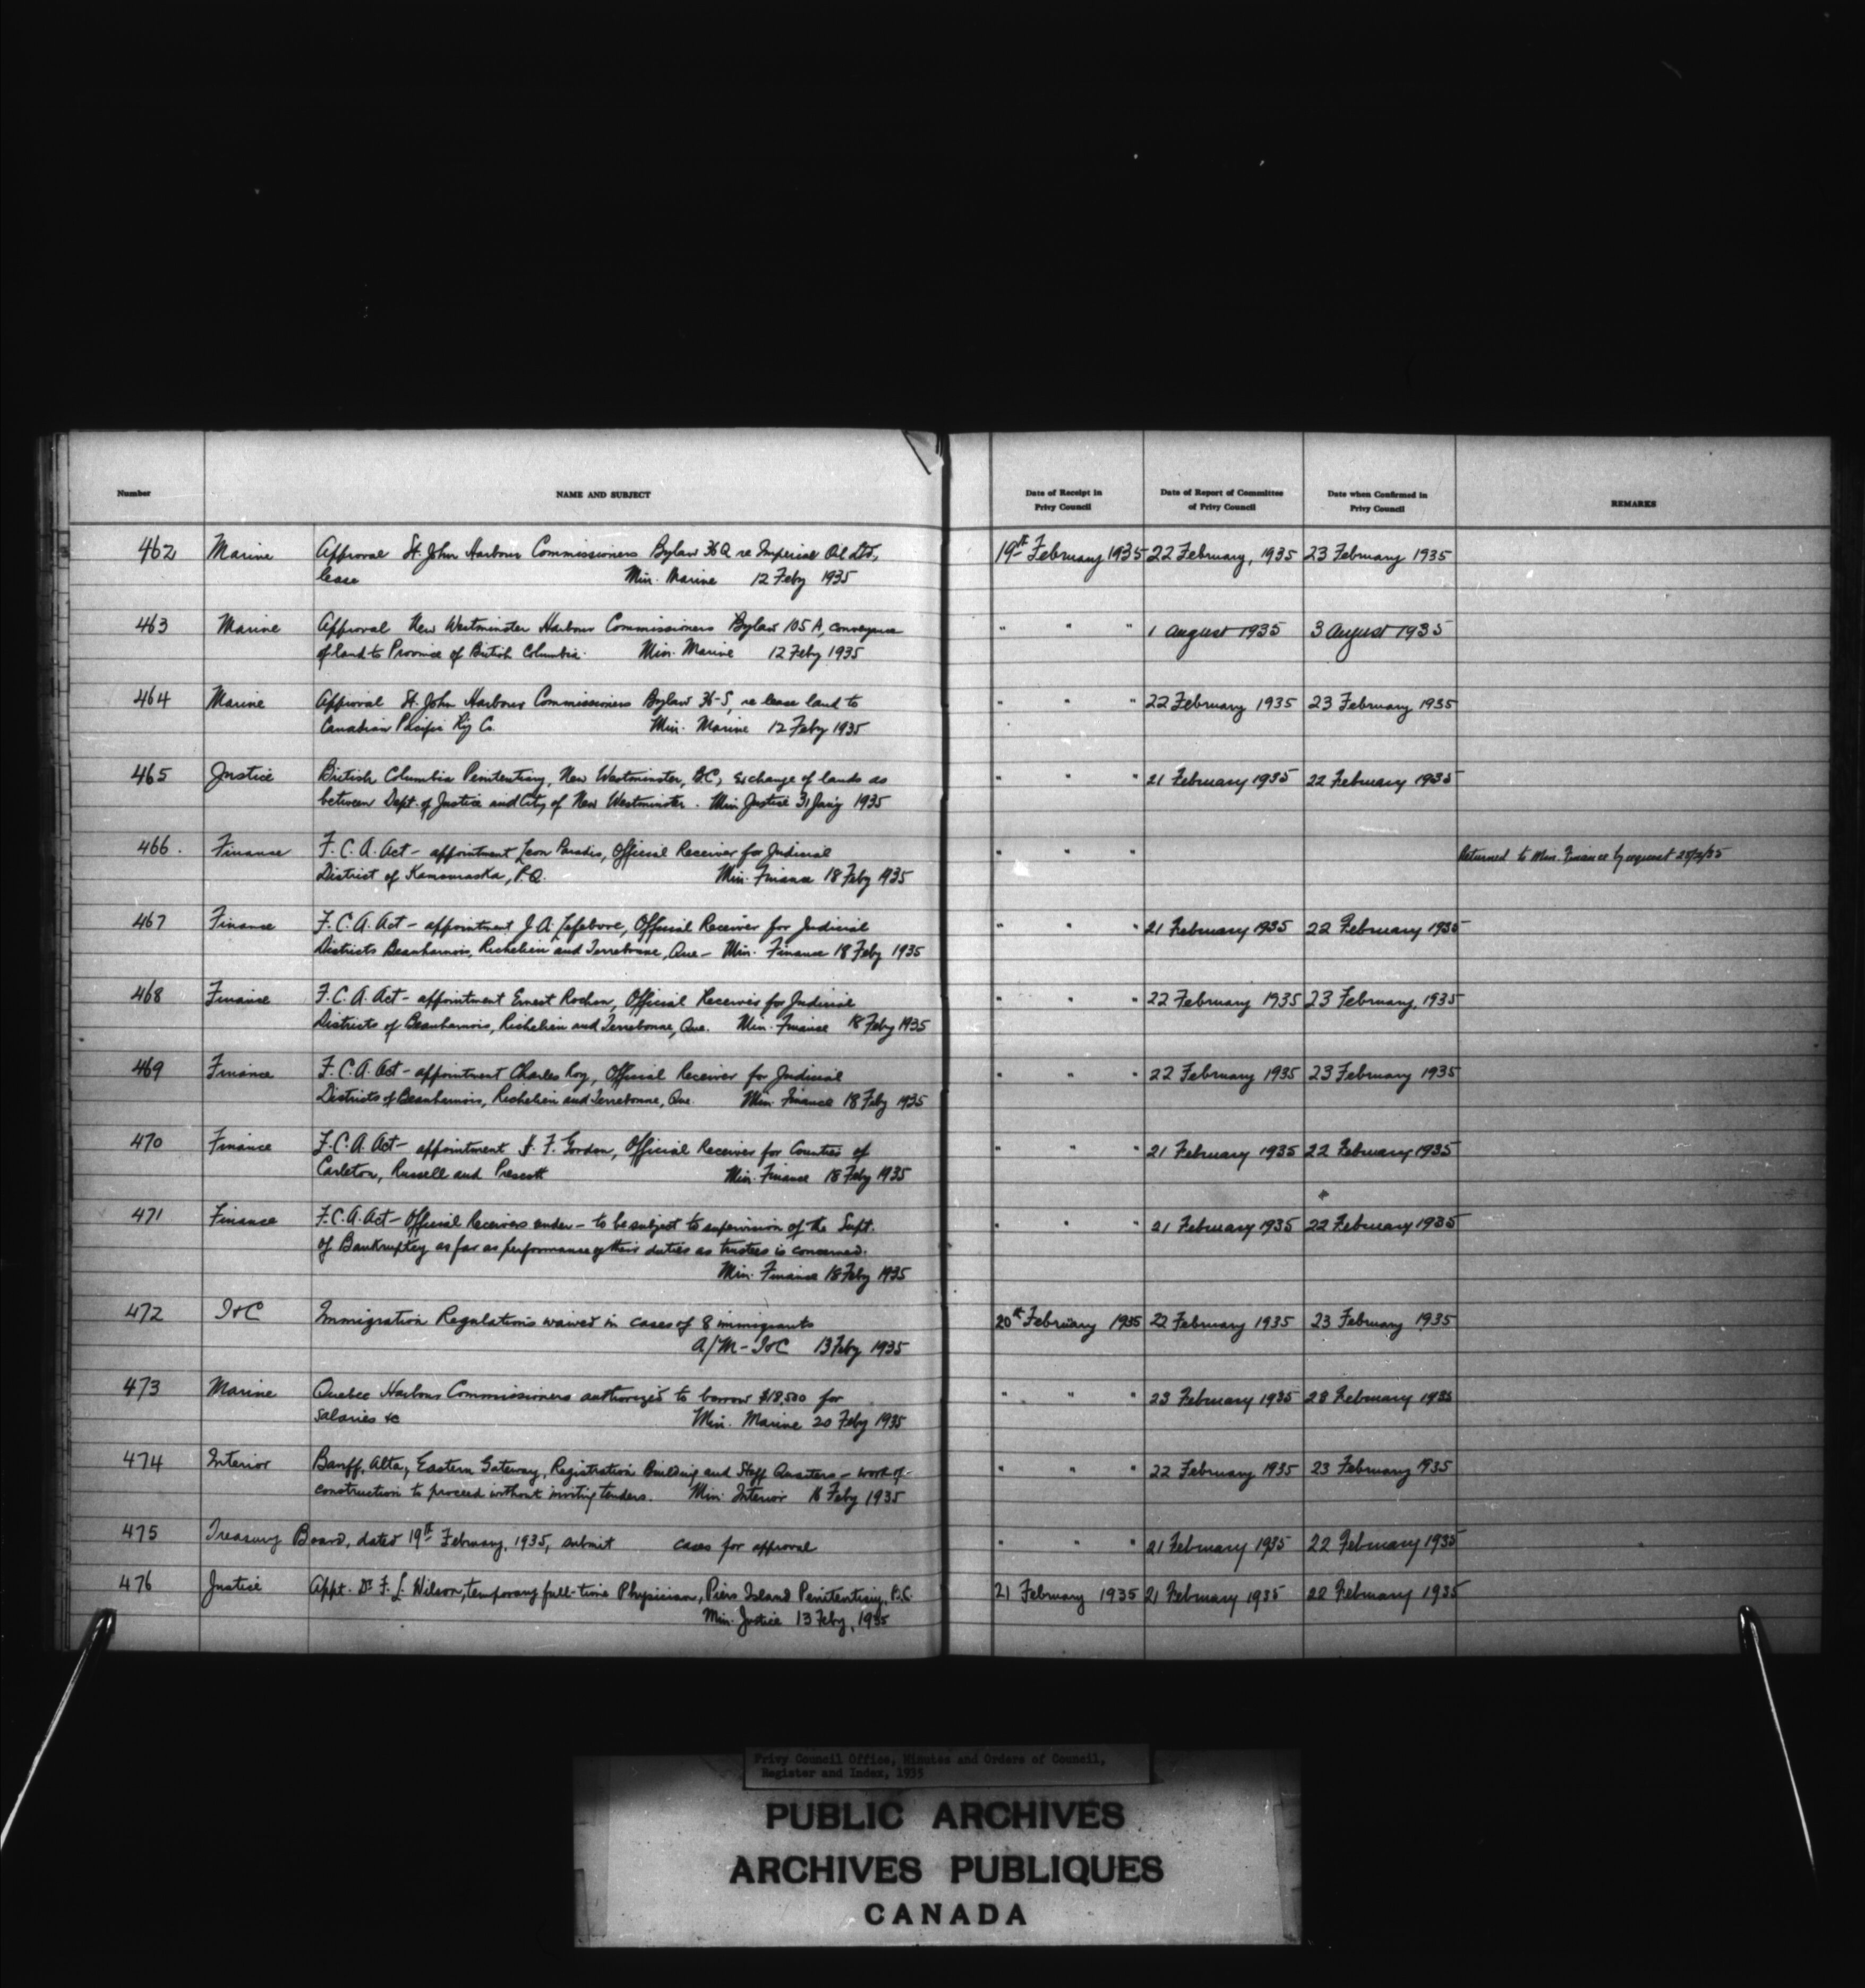 Number NAME AND SUBJECT Date of Receipt in Privy Council Date of Report of Committee of Privy Council Date when Confirmed in Privy Council REMARKS
462 Marine Approval St. John Harbour Commissioners Bylaw 36Q re Imperial Oil Ltd, 19th February 1935 22 February, 1935 23 February 1935
lease Min. Marine 12 Feby 1935
463 Marine Approval New Westminster Harbour Commissioners Bylaw 105A, conveyance " " " 1 August 1935 3 August 1935
of land to Province of British Columbia. Min. Marine 12 Feby 1935
464 Marine Approval St. John Harbour Commissioners Bylaw 36-S, re lease land to " " " 22 February 1935 23 February 1935
Canadian Pacific Rly Co. Min. Marine 12 Feby 1935
465 Justice British Columbia Penitentiary, New Westminster, B.C., exchange of lands as " " " 21 February 1935 22 February 1935
between Dept. of Justice and City of New Westminster. Min Justice 31 Jan'y 1935
466. Finance F.C.A. Act - appointment Leon Paradis, Official Receiver for Judicial " " " Returned to Min. Finance by request
District of Kamouraska, P.Q. Min. Finance 18 Feby 1935
467 Finance F.C.A. Act - appointment J.A. Lefebvre, Official Receiver for Judicial " " " 21 February 1935 22 February 1935
Districts Beauharnois, Richelieu and Terrebonne, Que - Min. Finance 18 Feby 1935
468 Finance F.C.A. Act - appointment Ernest Rochon, Official Receiver for Judicial " " " 22 February 1935 23 February, 1935
Districts of Beauharnois, Richelieu and Terrebonne, Que. Min. Finance 18 Feby 1935
469 Finance F.C.A. Act - appointment Charles Roy, Official Receiver for Judicial " " " 22 February 1935 23 February 1935
Districts of Beauharnois, Richelieu and Terrebonne, Que. Min. Finance 18 Feby 1935
470 Finance F.C.A. Act - appointment F. Gordon, Official Receiver for Counties of " " " 21 February 1935 22 February 1935
Carleton, Russell and Prescott Min. Finance 18 Feby 1935
471 Finance F.C.A. Act - Official Receivers under - to be subject to supervision of the Supt. " " " 21 February 1935 22 February 1935
of Bankruptcy as far as performance of their duties as trustees is concerned.
Min. Finance 18 Feby 1935
472 I & C Immigration Regulations waived in cases of 8 immigrants 20th February 1935 22 February 1935 23 February 1935
A/M - I & C 13 Feby 1935
473 Marine Quebec Harbour Commissioners authorized to borrow $18,500 for " " " 23 February 1935 28 February 1935
salaries &c Min. Marine 20 Feby 1935
474 Interior Banff, Alta, Eastern Gateway, Registration Building and Staff Quarters - work of " " " 22 February 1935 23 February 1935
construction to proceed without inviting tenders. Min. Interior 16 Feby 1935
475 Treasury Board, dated 19th February, 1935, submit cases for approval " " " 21 February 1935 22 February 1935
476 Justice Appt. Dr F. L. Wilson, temporary full-time Physician, Piers Island Penitentiary, B.C. 21 February 1935 21 February 1935 22 February 1935
Min. Justice 13 Feby, 1935
Privy Council Office, Minutes and Orders of Council,
Register and Index, 1935
PUBLIC ARCHIVES
ARCHIVES PUBLIQUES
CANADA